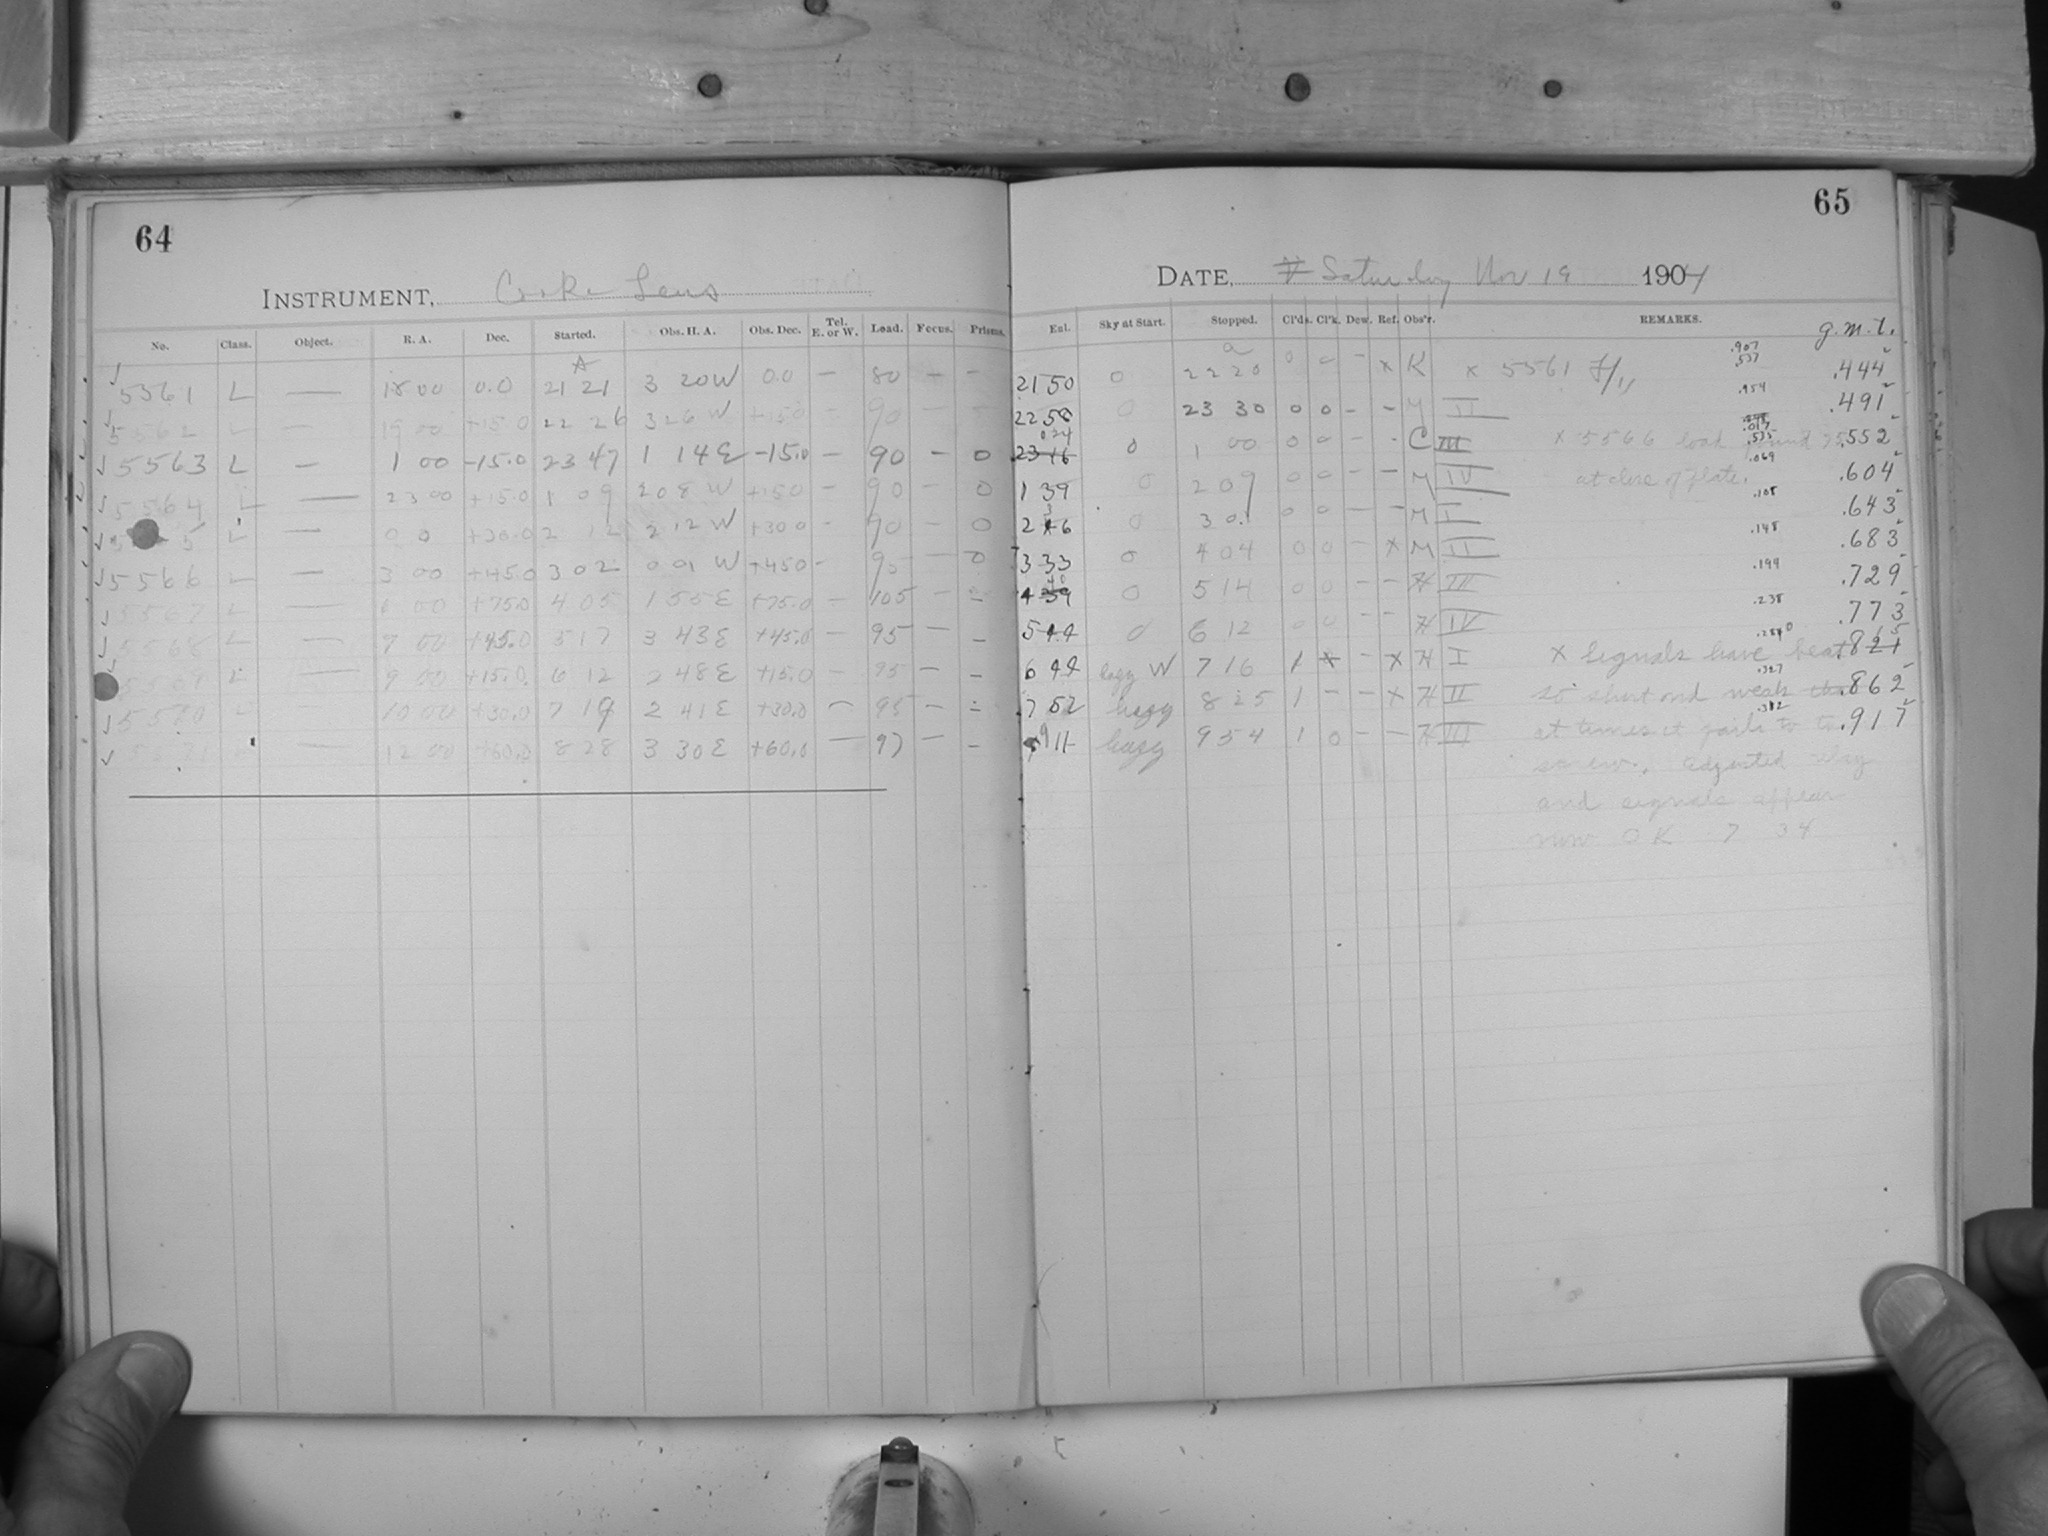 64
INSTRUMENT, Cooke Lens
No. Class. Object. R. A. Dec. Started. Obs. H. A. Obs. Dec. Tel. E. or W. Load. Focus. Prisms.
5561 L — 18 00 0.0 21 21 3 20 W 0.0 — 80 — —
5562 L — 19 00 +15.0 22 26 3 26 W +15.0 — 90 —
5563 L — 1 00 -15.0 23 47 1 14 E -15.0 — 90 — 0
5564 L — 23 00 +15.0 1 09 2 08 W +15.0 — 90 — 0
L — 0 0 +30.0 2 12 2 12 W +30.0 — 90 — 0
5566 L — 3 00 +45.0 3 02 0 01 W +45.0 — 95 — 0
5567 L — 6 00 +75.0 4 05 1 55 E +75.0 — 105 — —
5568 L — 9 00 +45.0 5 17 3 43 E +45.0 — 95 — —
5569 L — 9 00 +15.0 6 12 2 48 E +15.0 — 95 —
5570 L — 10 00 +30.0 7 19 2 41 E +30.0 — 95 — —
5571 — 12 00 +60.0 8 28 3 30 E +60.0 — 97 — —
65
DATE, Saturday Nov 19 1904
Enl. Sky at Start. Stopped. Cl'ds. Cl'k. Dew. Ref. Obs'r. REMARKS. g.m.t.
21 50 0 22 20 0 0 — x K x 5561 .907 .537 .444
22 58 0 23 30 0 0 — — M II .954 .491
0 24 0 1 00 0 0 — - C III x 5566 load found 75 .535 .552
1 39 0 2 09 0 0 — — M IV at close of plate. .069 .604
2 36 0 3 0 0 0 — — M I .108 .643
3 33 0 4 04 0 0 — x M II .148 .683
4 40 0 5 14 0 0 — — H III .194 .729
5 44 0 6 12 0 0 — — H IV .238 .773
6 44 hazy W 7 16 1 x — x H I x Signals have beat .821
7 52 hazy 8 25 1 — — x H II so short and weak .327 .862
9 11 hazy 9 54 1 0 — — H III at times it fails to .382 .917
adjusted
and signals appear
now OK 7 34